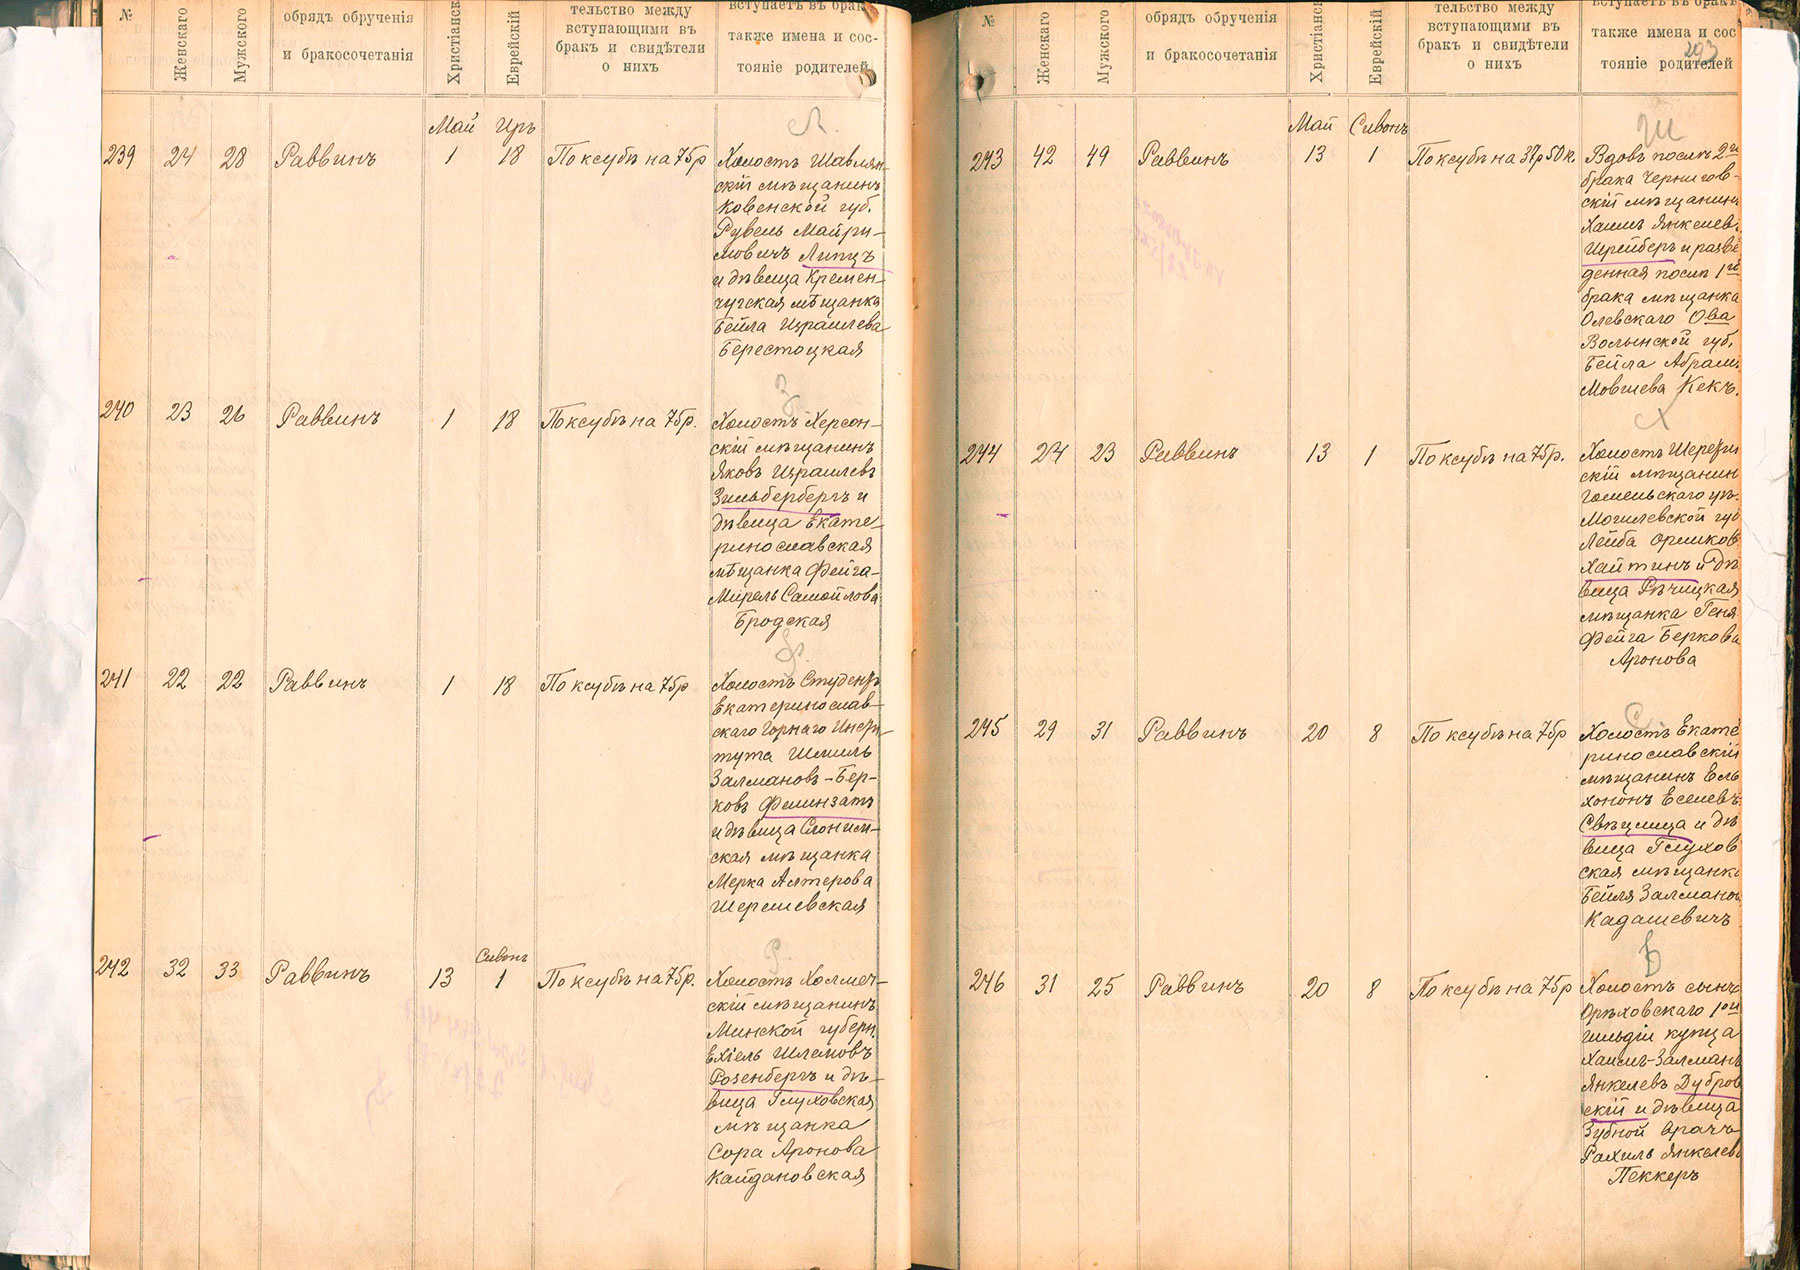 №
Женскаго
Мужского
обрядъ обрученія
и бракосочетанія
Христіанск
Еврейскій
тельство между
вступающими въ
бракъ и свидѣтели
о нихъ
вступаетъ въ брак
также имена и сос-
тояніе родителей
Май
Иръ
Л.
239
24
28
Раввинъ
1
18
По ксубѣ на 75р
Холостъ Шавлян-
скій мѣщанинъ
Ковенской губ.
Рувель Майри-
мовичъ Липцъ
и дѣвица Кремен-
чугская мѣщанка
Бейла Израилева
Берестоцкая
З
240
23
26
Раввинъ
1
18
По ксубѣ на 75р.
Холостъ Херсон-
скій мѣщанинъ
Яковъ Израилевъ
Зильбербергъ и
дѣвица Екате-
ринославская
мѣщанка Фейга-
Мирель Самойлова
Бродская
Ф.
241
22
22
Раввинъ
1
18
По ксубѣ на 75р
Холостъ Студентъ
Екатеринослав-
скаго Горнаго Инсти-
тута Шмиль
Залмановъ-Бер-
ковъ
и дѣвица Слоним-
ская мѣщанка
Мерка Алтерова
Шерешевская
Р.
242
32
33
Раввинъ
13
Сивонъ
1
По ксубѣ на 75р.
Холостъ Холмеч-
скій мѣщанинъ
Минской губерн.
Ехіель Шлемовъ
Розенбергъ и дѣ-
вица Глуховская
мѣщанка
Сора Аронова
Кайдановская
№
Женскаго
Мужского
обрядъ обрученія
и бракосочетанія
Христіанск
Еврейскій
тельство между
вступающими въ
бракъ и свидѣтели
о нихъ
вступаетъ въ бракъ
также имена и сос
тояніе родителей
293
Май
Сивонъ
Ш
243
42
49
Раввинъ
13
1
По ксубѣ на 37р 50к.
Вдовъ послѣ 2го
брака Чернигов-
скій мѣщанинъ
Хаимъ Янкелевъ
Шрейберъ и разве
денная послѣ 1го
брака мѣщанка
Олевскаго Ова
Волынской губ.
Бейла Абрам
Мовшева Кекъ.
Х
244
24
23
Раввинъ
13
1
По ксубѣ на 75р.
Холостъ
скій мѣщанин
Гомельскаго уѣ.
Могилевской губ
Лейба Оршков
Хайтинъ и дѣ
вица Рѣчицкая
мѣщанка Геня
Фейга Беркова
Аронова
С.
245
29
31
Раввинъ
20
8
По ксубѣ на 75р
Холостъ Екате
ринославскій
мѣщанинъ Ель
хононъ Еселевъ
Свѣцица и дѣ
вица Глухов
ская мѣщанка
Бейля Залманов
Кадашевичъ
Д
246
31
25
Раввинъ
20
8
По ксубѣ на 75р
Холостъ сынъ
Орѣховскаго 1ой
гильдіи купца
Хаимъ-Залманъ
Янкелевъ Дубров
скій и дѣвица
Зубной врачъ
Рахиль Янкелев
Пеккеръ